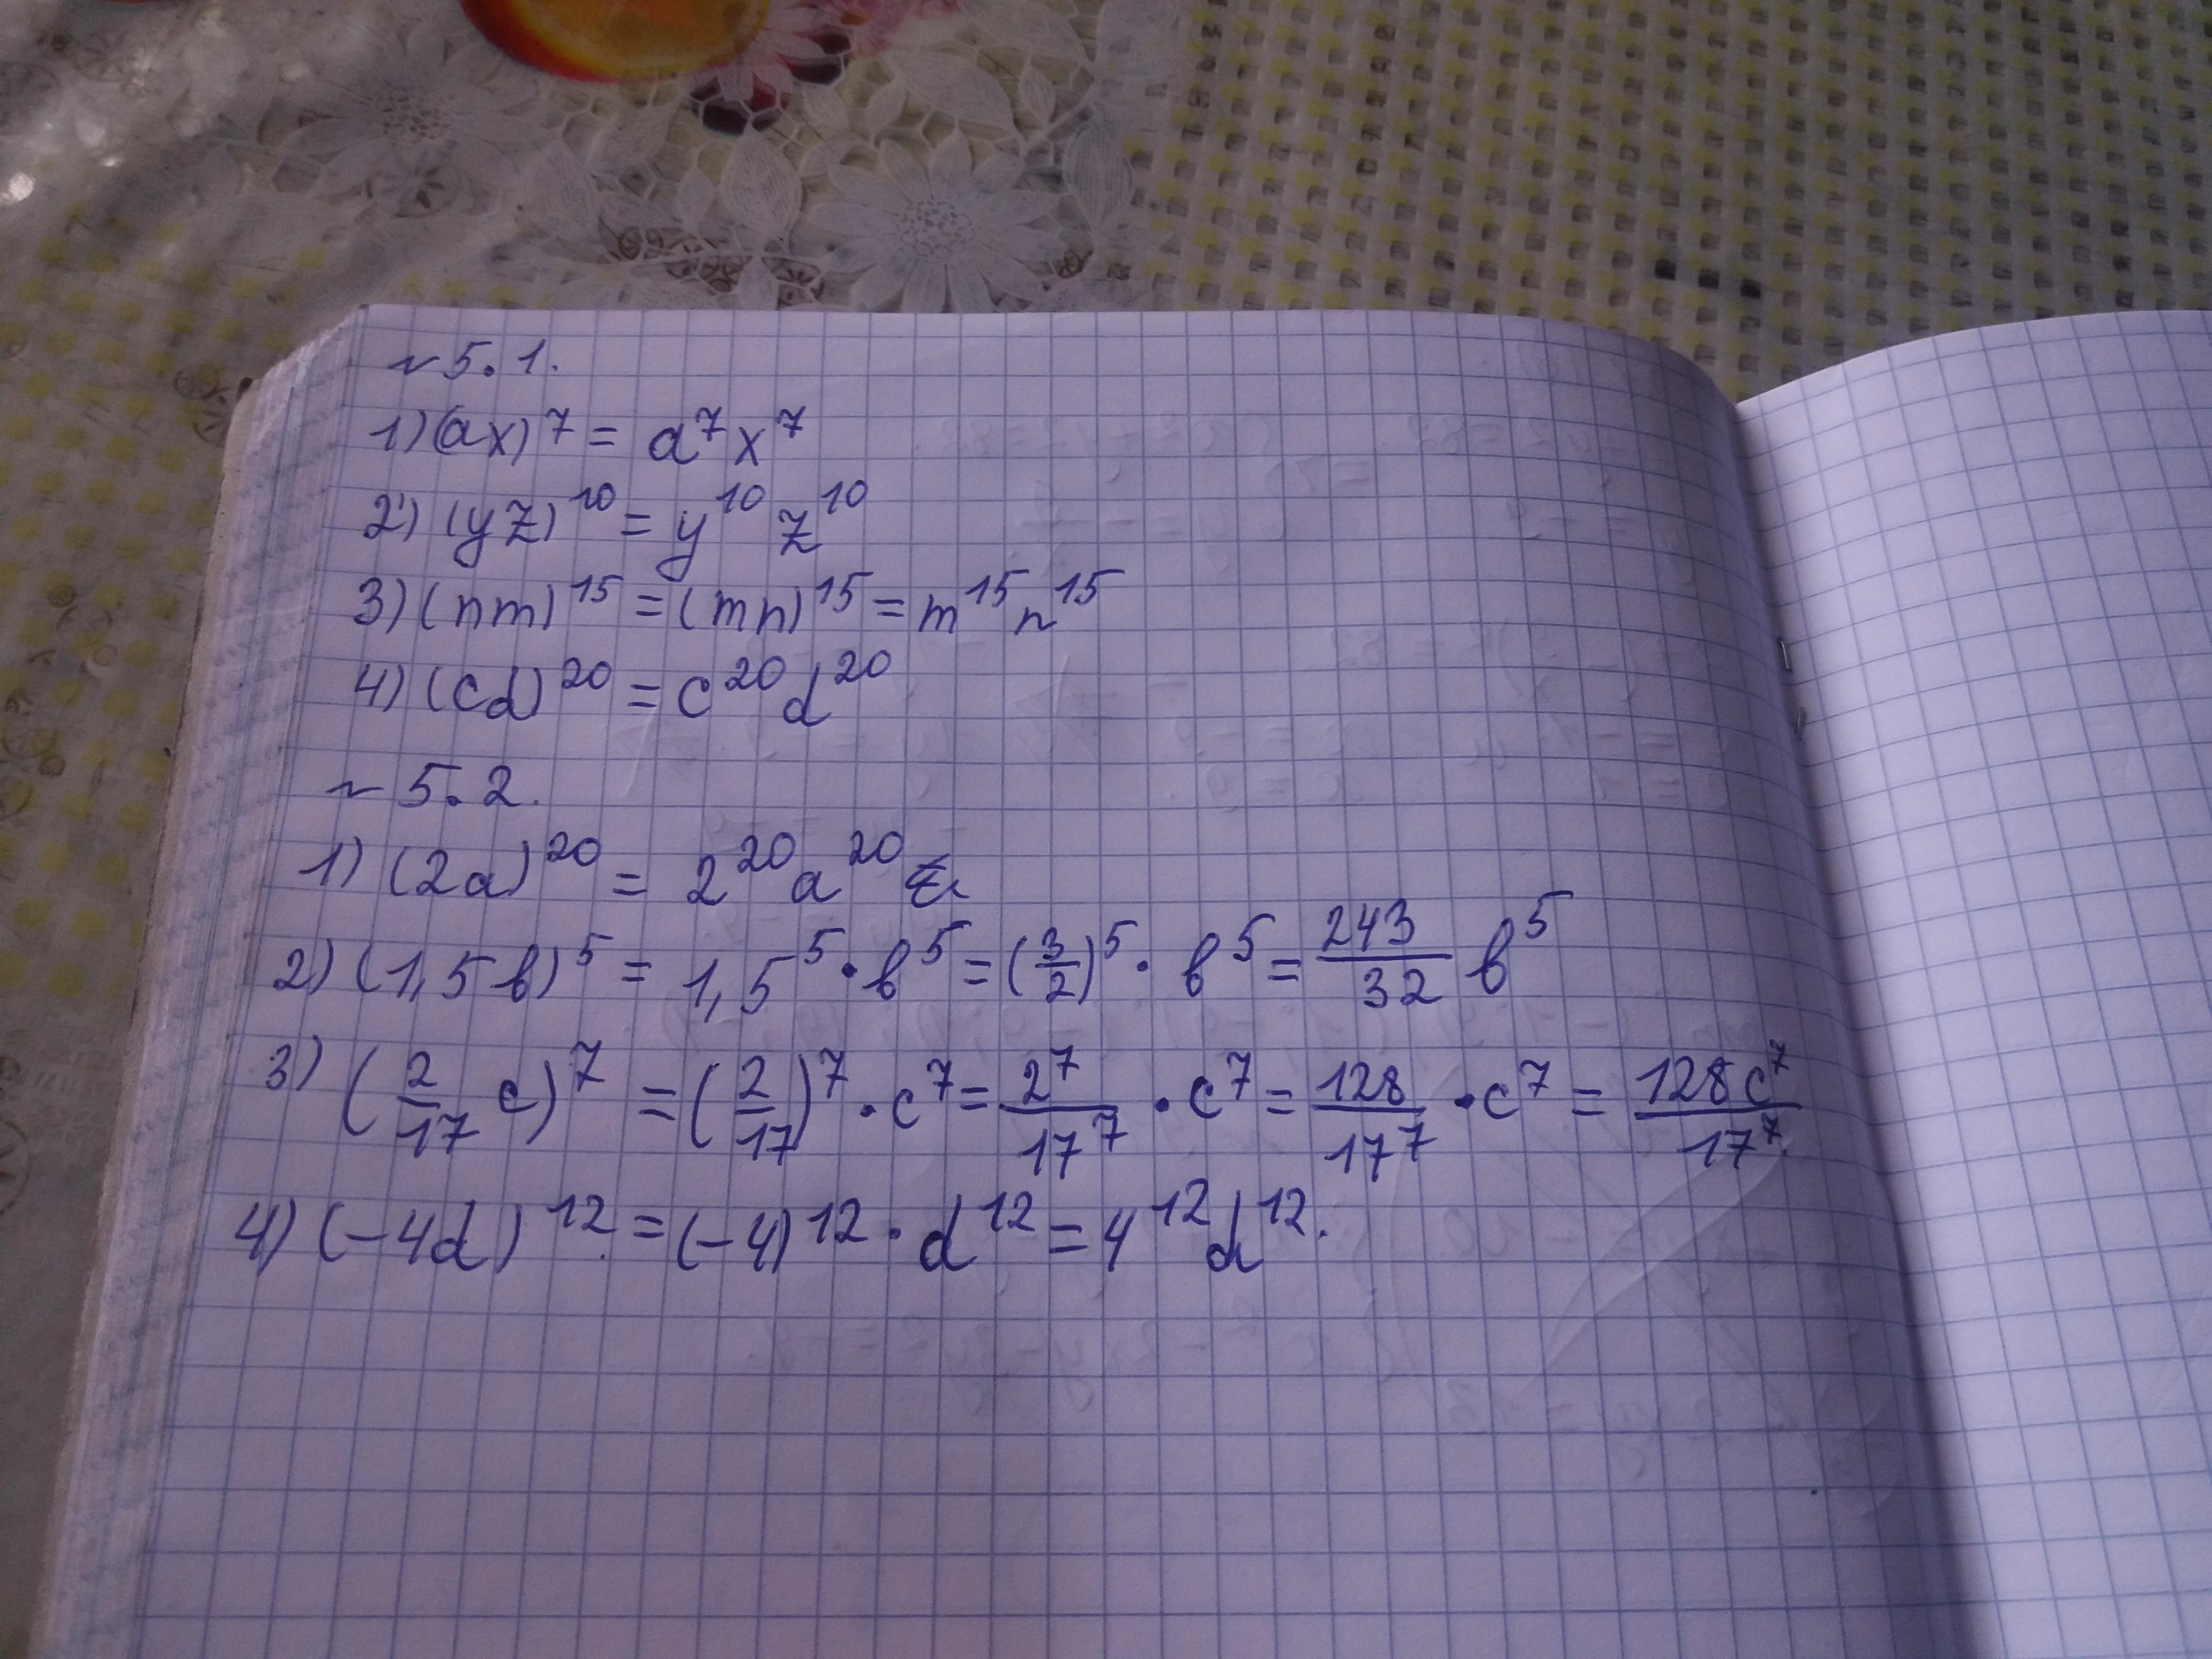 ~ 5.1.
1) (ax)⁷ = a⁷x⁷
2) (yz)¹⁰ = y¹⁰ z¹⁰
3) (nm)¹⁵ = (mn)¹⁵ = m¹⁵n¹⁵
4) (cd)²⁰ = c²⁰d²⁰
~ 5.2.
1) (2a)²⁰ = 2²⁰a²⁰
2) (1,5b)⁵ = 1,5⁵ · b⁵ = (3/2)⁵ · b⁵ = 243/32 b⁵
3) (2/17 c)⁷ = (2/17)⁷ · c⁷ = 2⁷/17⁷ · c⁷ = 128/17⁷ · c⁷ = 128c⁷/17⁷.
4) (-4d)¹² = (-4)¹² · d¹² = 4¹²d¹².